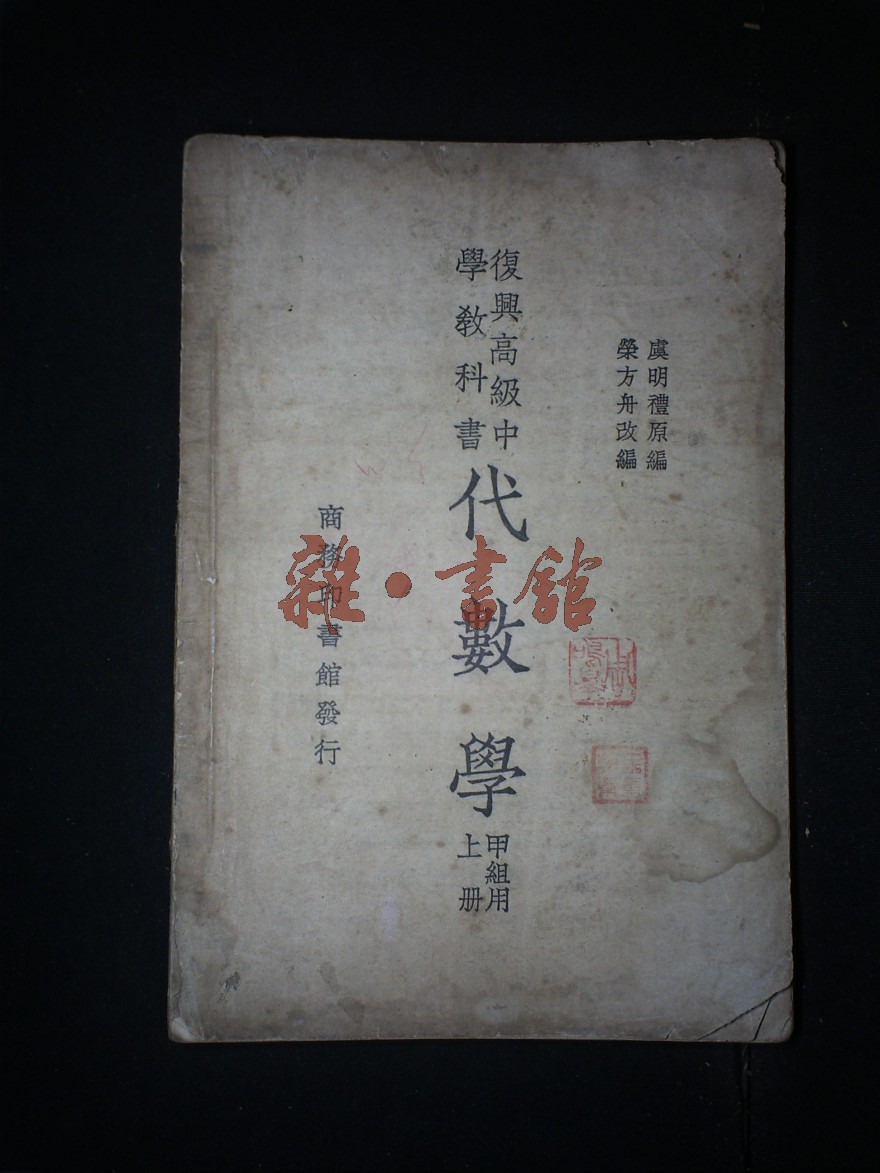 虞明禮原編
榮方舟改編
復興高級中
學教科書
代數學
甲組用
上册
商務印書館發行
雜·書館